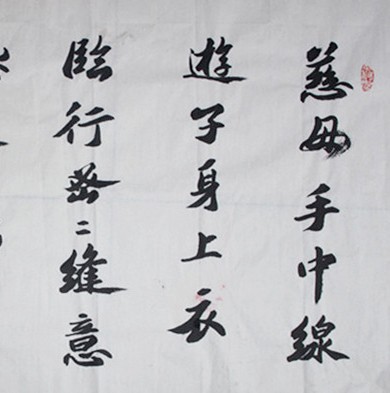 慈母手中線
遊子身上衣
臨行密々縫意